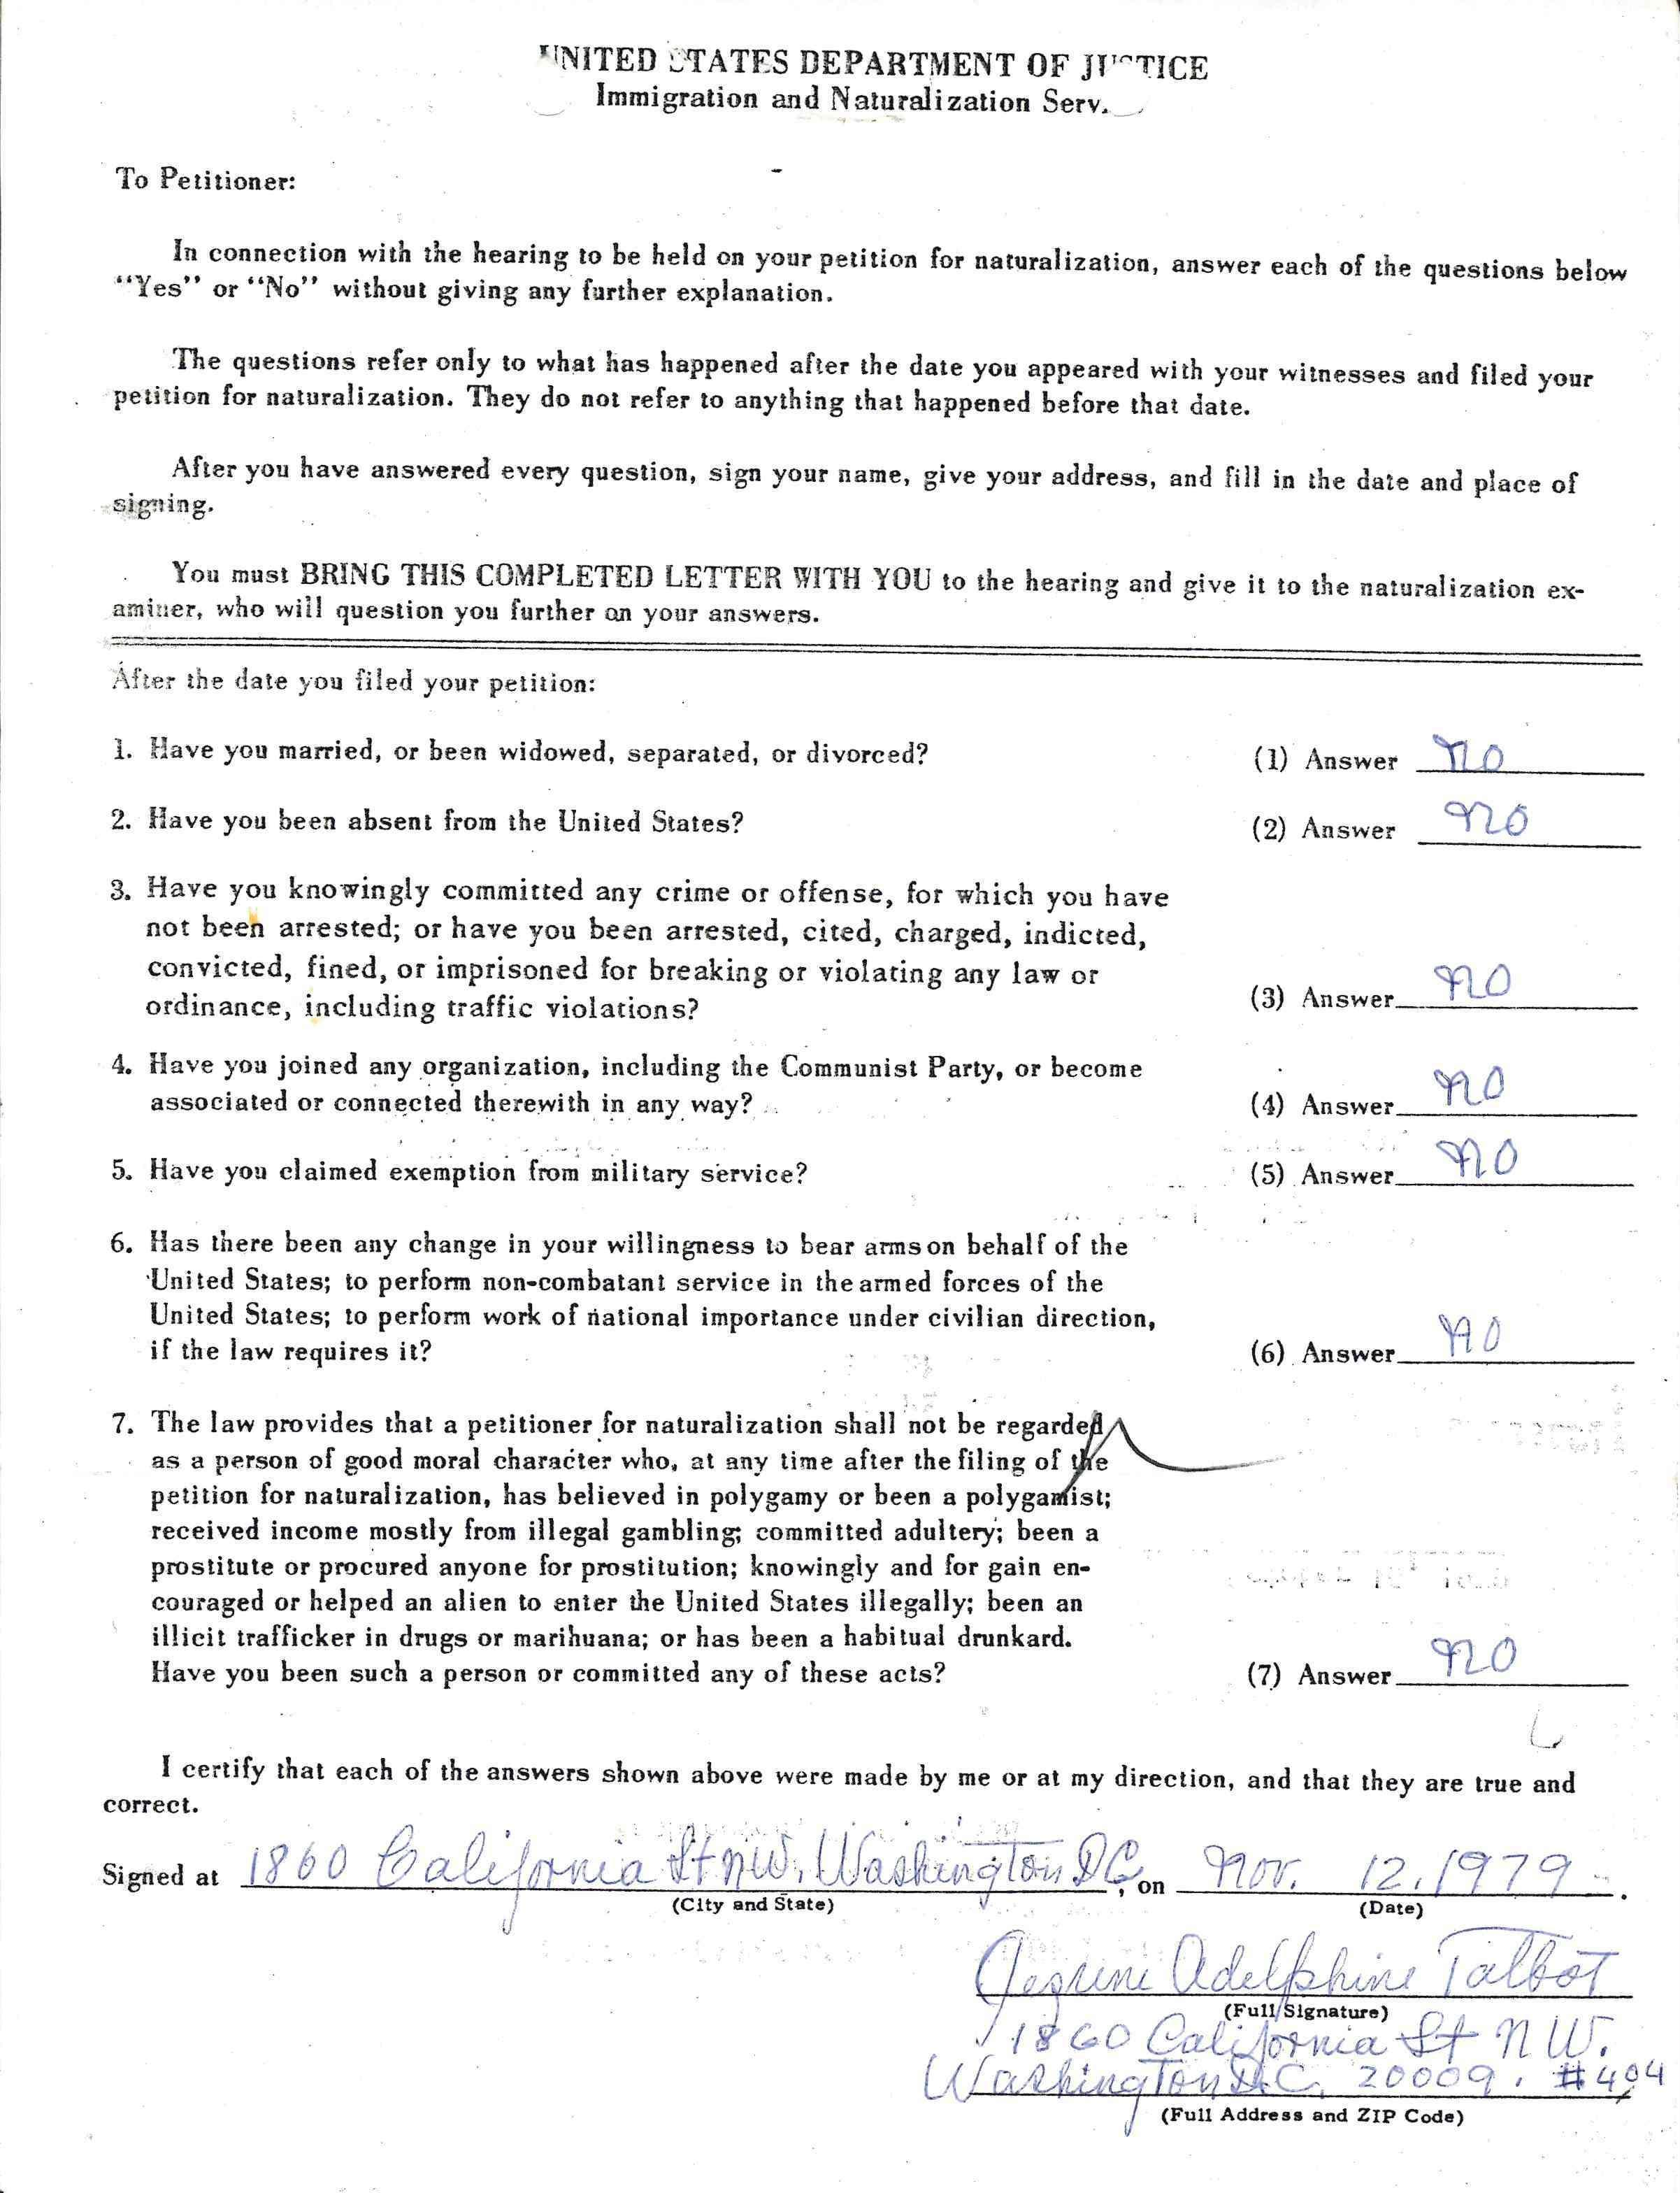 UNITED STATES DEPARTMENT OF JUSTICE
Immigration and Naturalization Serv.
To Petitioner:
In connection with the hearing to be held on your petition for naturalization, answer each of the questions below
"Yes" or "No" without giving any further explanation.
The questions refer only to what has happened after the date you appeared with your witnesses and filed your
petition for naturalization. They do not refer to anything that happened before that date.
After you have answered every question, sign your name, give your address, and fill in the date and place of
signing.
You must BRING THIS COMPLETED LETTER WITH YOU to the hearing and give it to the naturalization ex-
aminer, who will question you further on your answers.
After the date you filed your petition:
1. Have you married, or been widowed, separated, or divorced? (1) Answer no
2. Have you been absent from the United States? (2) Answer no
3. Have you knowingly committed any crime or offense, for which you have
not been arrested; or have you been arrested, cited, charged, indicted,
convicted, fined, or imprisoned for breaking or violating any law or
ordinance, including traffic violations? (3) Answer no
4. Have you joined any organization, including the Communist Party, or become
associated or connected therewith in any way? (4) Answer no
5. Have you claimed exemption from military service? (5) Answer no
6. Has there been any change in your willingness to bear arms on behalf of the
United States; to perform non-combatant service in the armed forces of the
United States; to perform work of national importance under civilian direction,
if the law requires it? (6) Answer no
7. The law provides that a petitioner for naturalization shall not be regarded
as a person of good moral character who, at any time after the filing of the
petition for naturalization, has believed in polygamy or been a polygamist;
received income mostly from illegal gambling; committed adultery; been a
prostitute or procured anyone for prostitution; knowingly and for gain en-
couraged or helped an alien to enter the United States illegally; been an
illicit trafficker in drugs or marihuana; or has been a habitual drunkard.
Have you been such a person or committed any of these acts? (7) Answer no
I certify that each of the answers shown above were made by me or at my direction, and that they are true and
correct.
Signed at 1860 California St NW. Washington DC, on Nov. 12. 1979.
(City and State) (Date)
Adelphine Talbot
(Full Signature)
1860 California St NW.
Washington D.C. 20009. #404
(Full Address and ZIP Code)